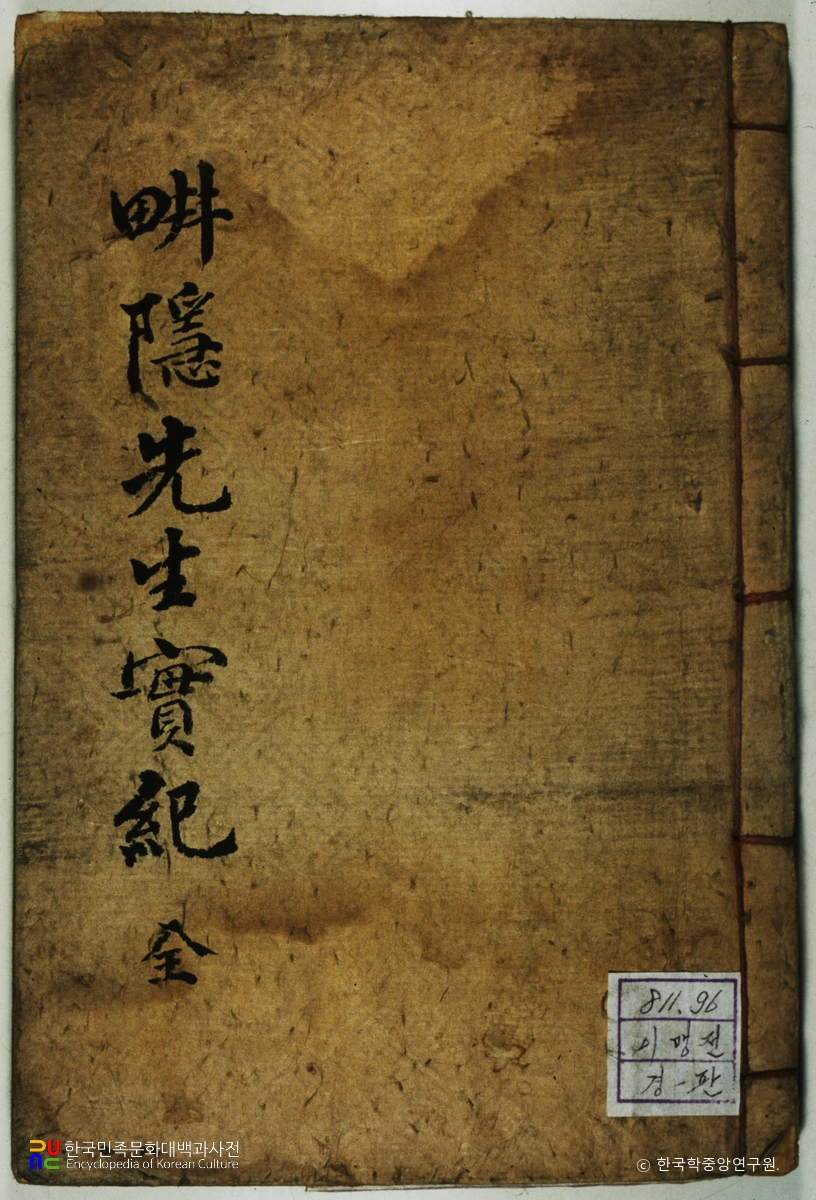 畊隱先生實紀 全
811.96
이맹전
경-판
한국민족문화대백과사전
Encyclopedia of Korean Culture
© 한국학중앙연구원.